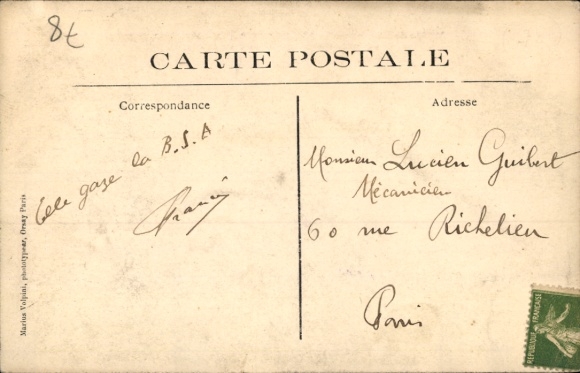 8€
CARTE POSTALE
Correspondance
Adresse
Elle gaze la B.S.A
Francis
Monsieur Lucien Guibert
Mécanicien
60 rue Richelieu
Paris
Marius Volpini, phototypeur, Orsay Paris
REPUBLIQUE FRANÇAISE